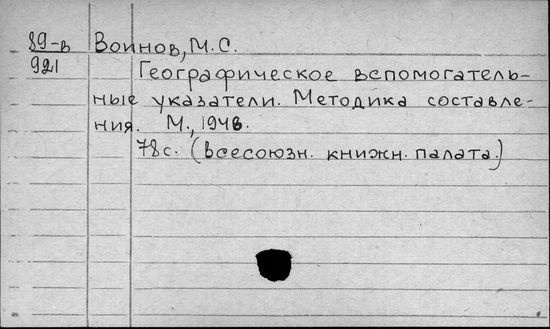 89-в Воинов, М.С.
921 Географическое вспомогатель-
ные указатели. Методика составле-
ния. М., 1948.
78с. (Всесоюзн. книжн. палата.)